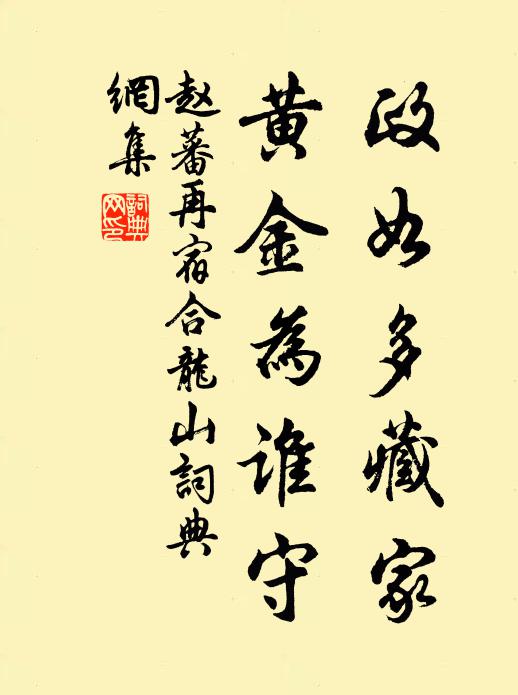 政如多藏家
黄金為誰守
赵蕃再宿合龍山詞典
網集
詞典網印